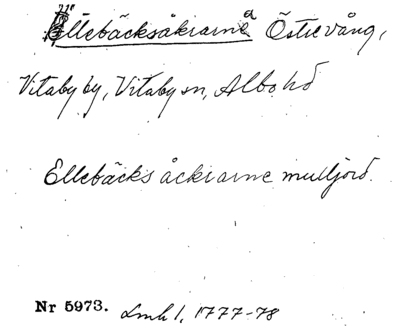 Ellebäcksåkrarna Östrevång,
Vitaby by, Vitaby sn, Albo hd
Ellebäcks åckrarne mulljord.
Nr 5973. Lmh 1, 1777-78